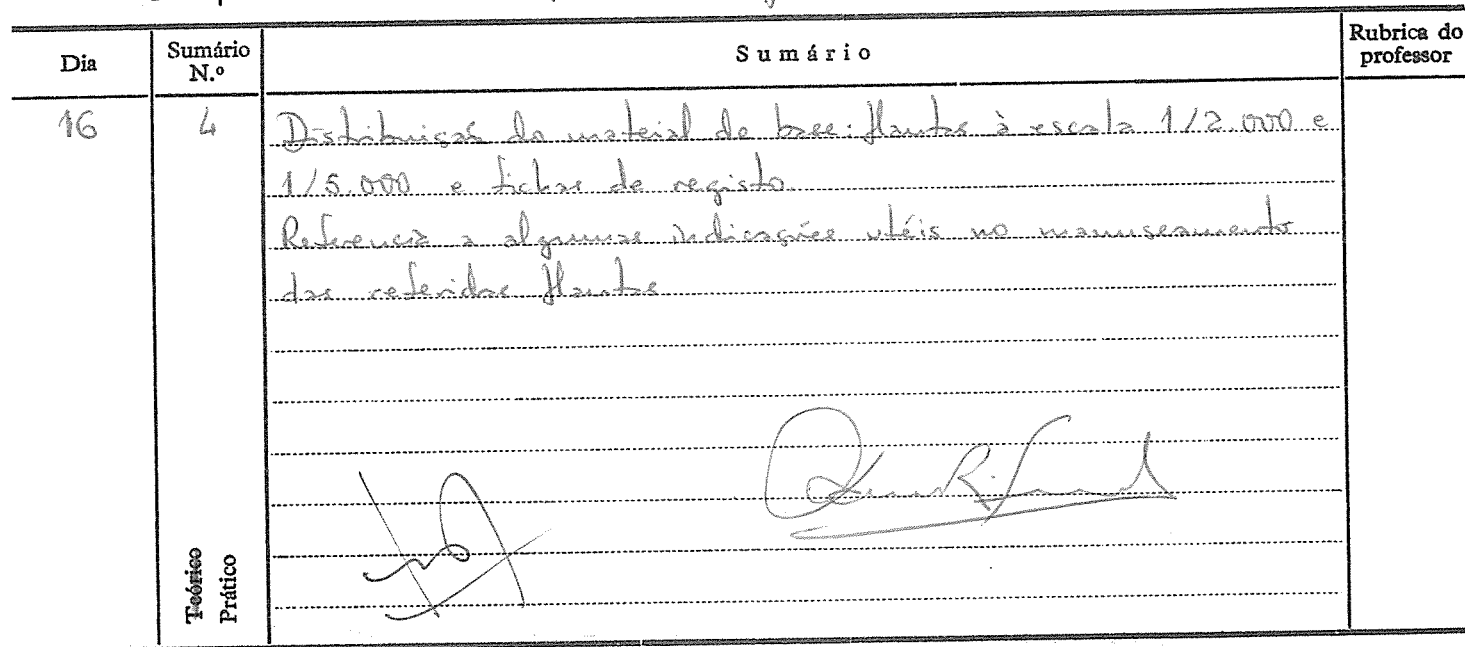 Dia
Sumário N.º
Sumário
Rubrica do professor
16
4
Distribuição do material de base: plantas à escala 1/2.000 e
1/5.000 e fichas de registo.
Referencia a algumas indicações utéis no manuseamento
das referidas plantas
Teórico
Prático